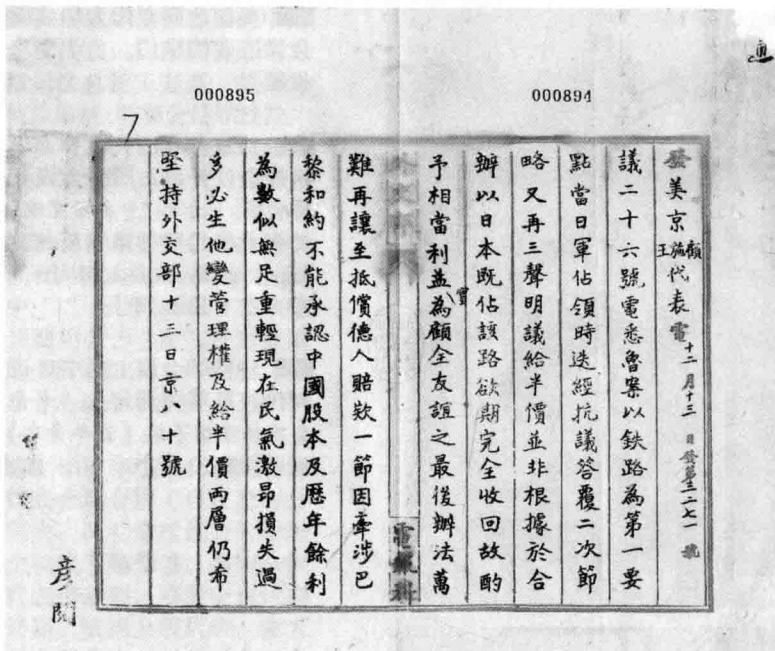 000895
000894
發美京顧施王代表電 十二月十三日發第三二七一號
議二十六號電悉魯案以鉄路為第一要
點當日軍佔領時迭經抗議答覆二次節
略又再三聲明議給半價並非根據於合
辦以日本既佔該路欲期完全收回故酌
予相當利益實為顧全友誼之最後辦法萬
難再讓至抵償德人賠欵一節因牽涉巴
黎和約不能承認中國股本及歷年餘利
為數似無足重輕現在民氣激昂損失過
多必生他變管理權及給半價兩層仍希
堅持外交部十三日京八十號
電報科
彥閱
7